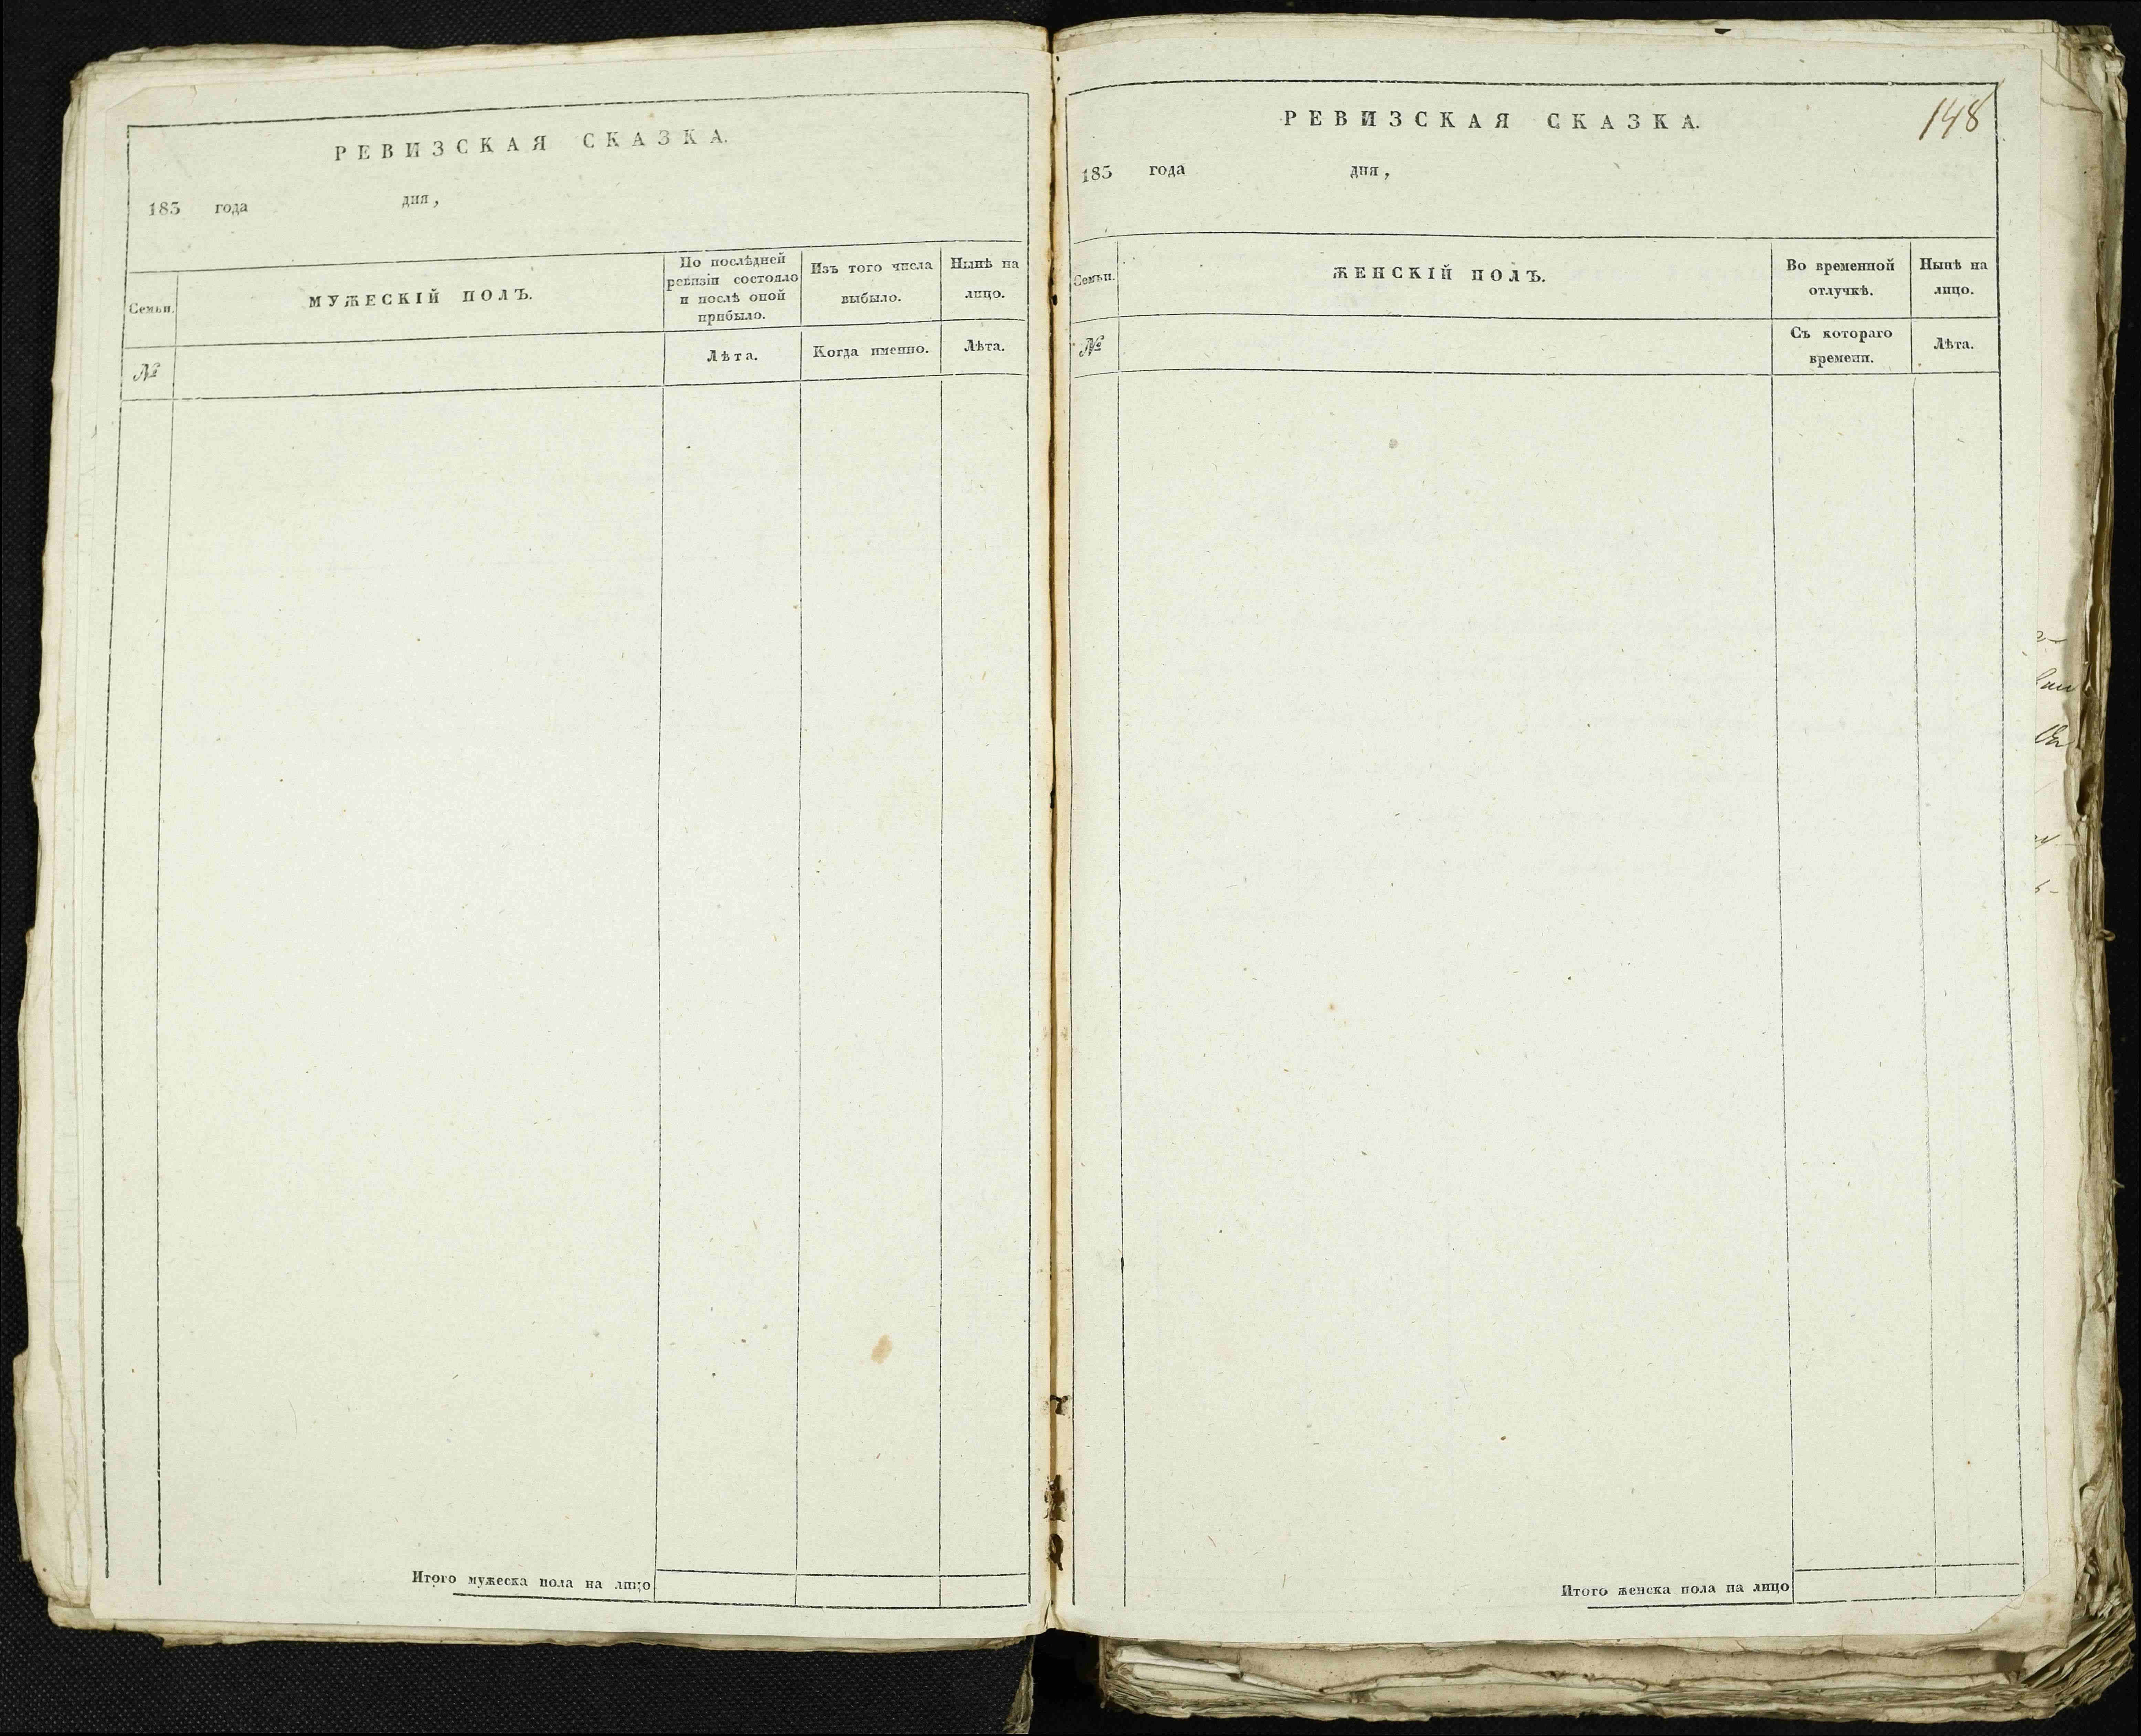 РЕВИЗСКАЯ СКАЗКА.
183 года дня,
Семьи.
МУЖЕСКІЙ ПОЛЪ.
По послѣдней
ревизіи состояло
и послѣ оной
прибыло.
Изъ того числа
выбыло.
Нынѣ на
лицо.
№
Лѣта.
Когда именно.
Лѣта.
Итого мужеска пола на лицо
148
РЕВИЗСКАЯ СКАЗКА.
183 года дня,
Семьи.
ЖЕНСКІЙ ПОЛЪ.
Во временной
отлучкѣ.
Нынѣ на
лицо.
№
Съ котораго
времени.
Лѣта.
Итого женска пола на лицо